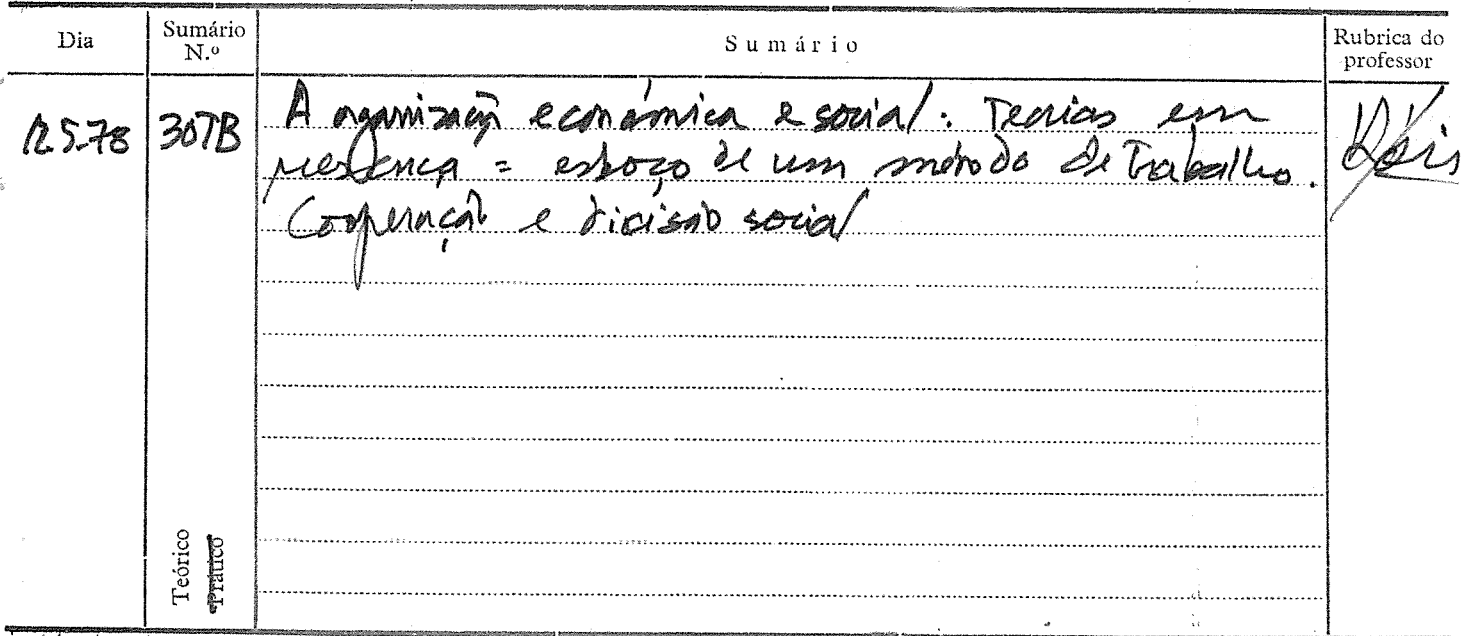 Dia
Sumário N.º
Sumário
Rubrica do professor
12.5.78
30TB
A organização económica e social. Teorias em
presença = esboço de um método de trabalho.
Cooperação e divisão social
Teórico
Prático